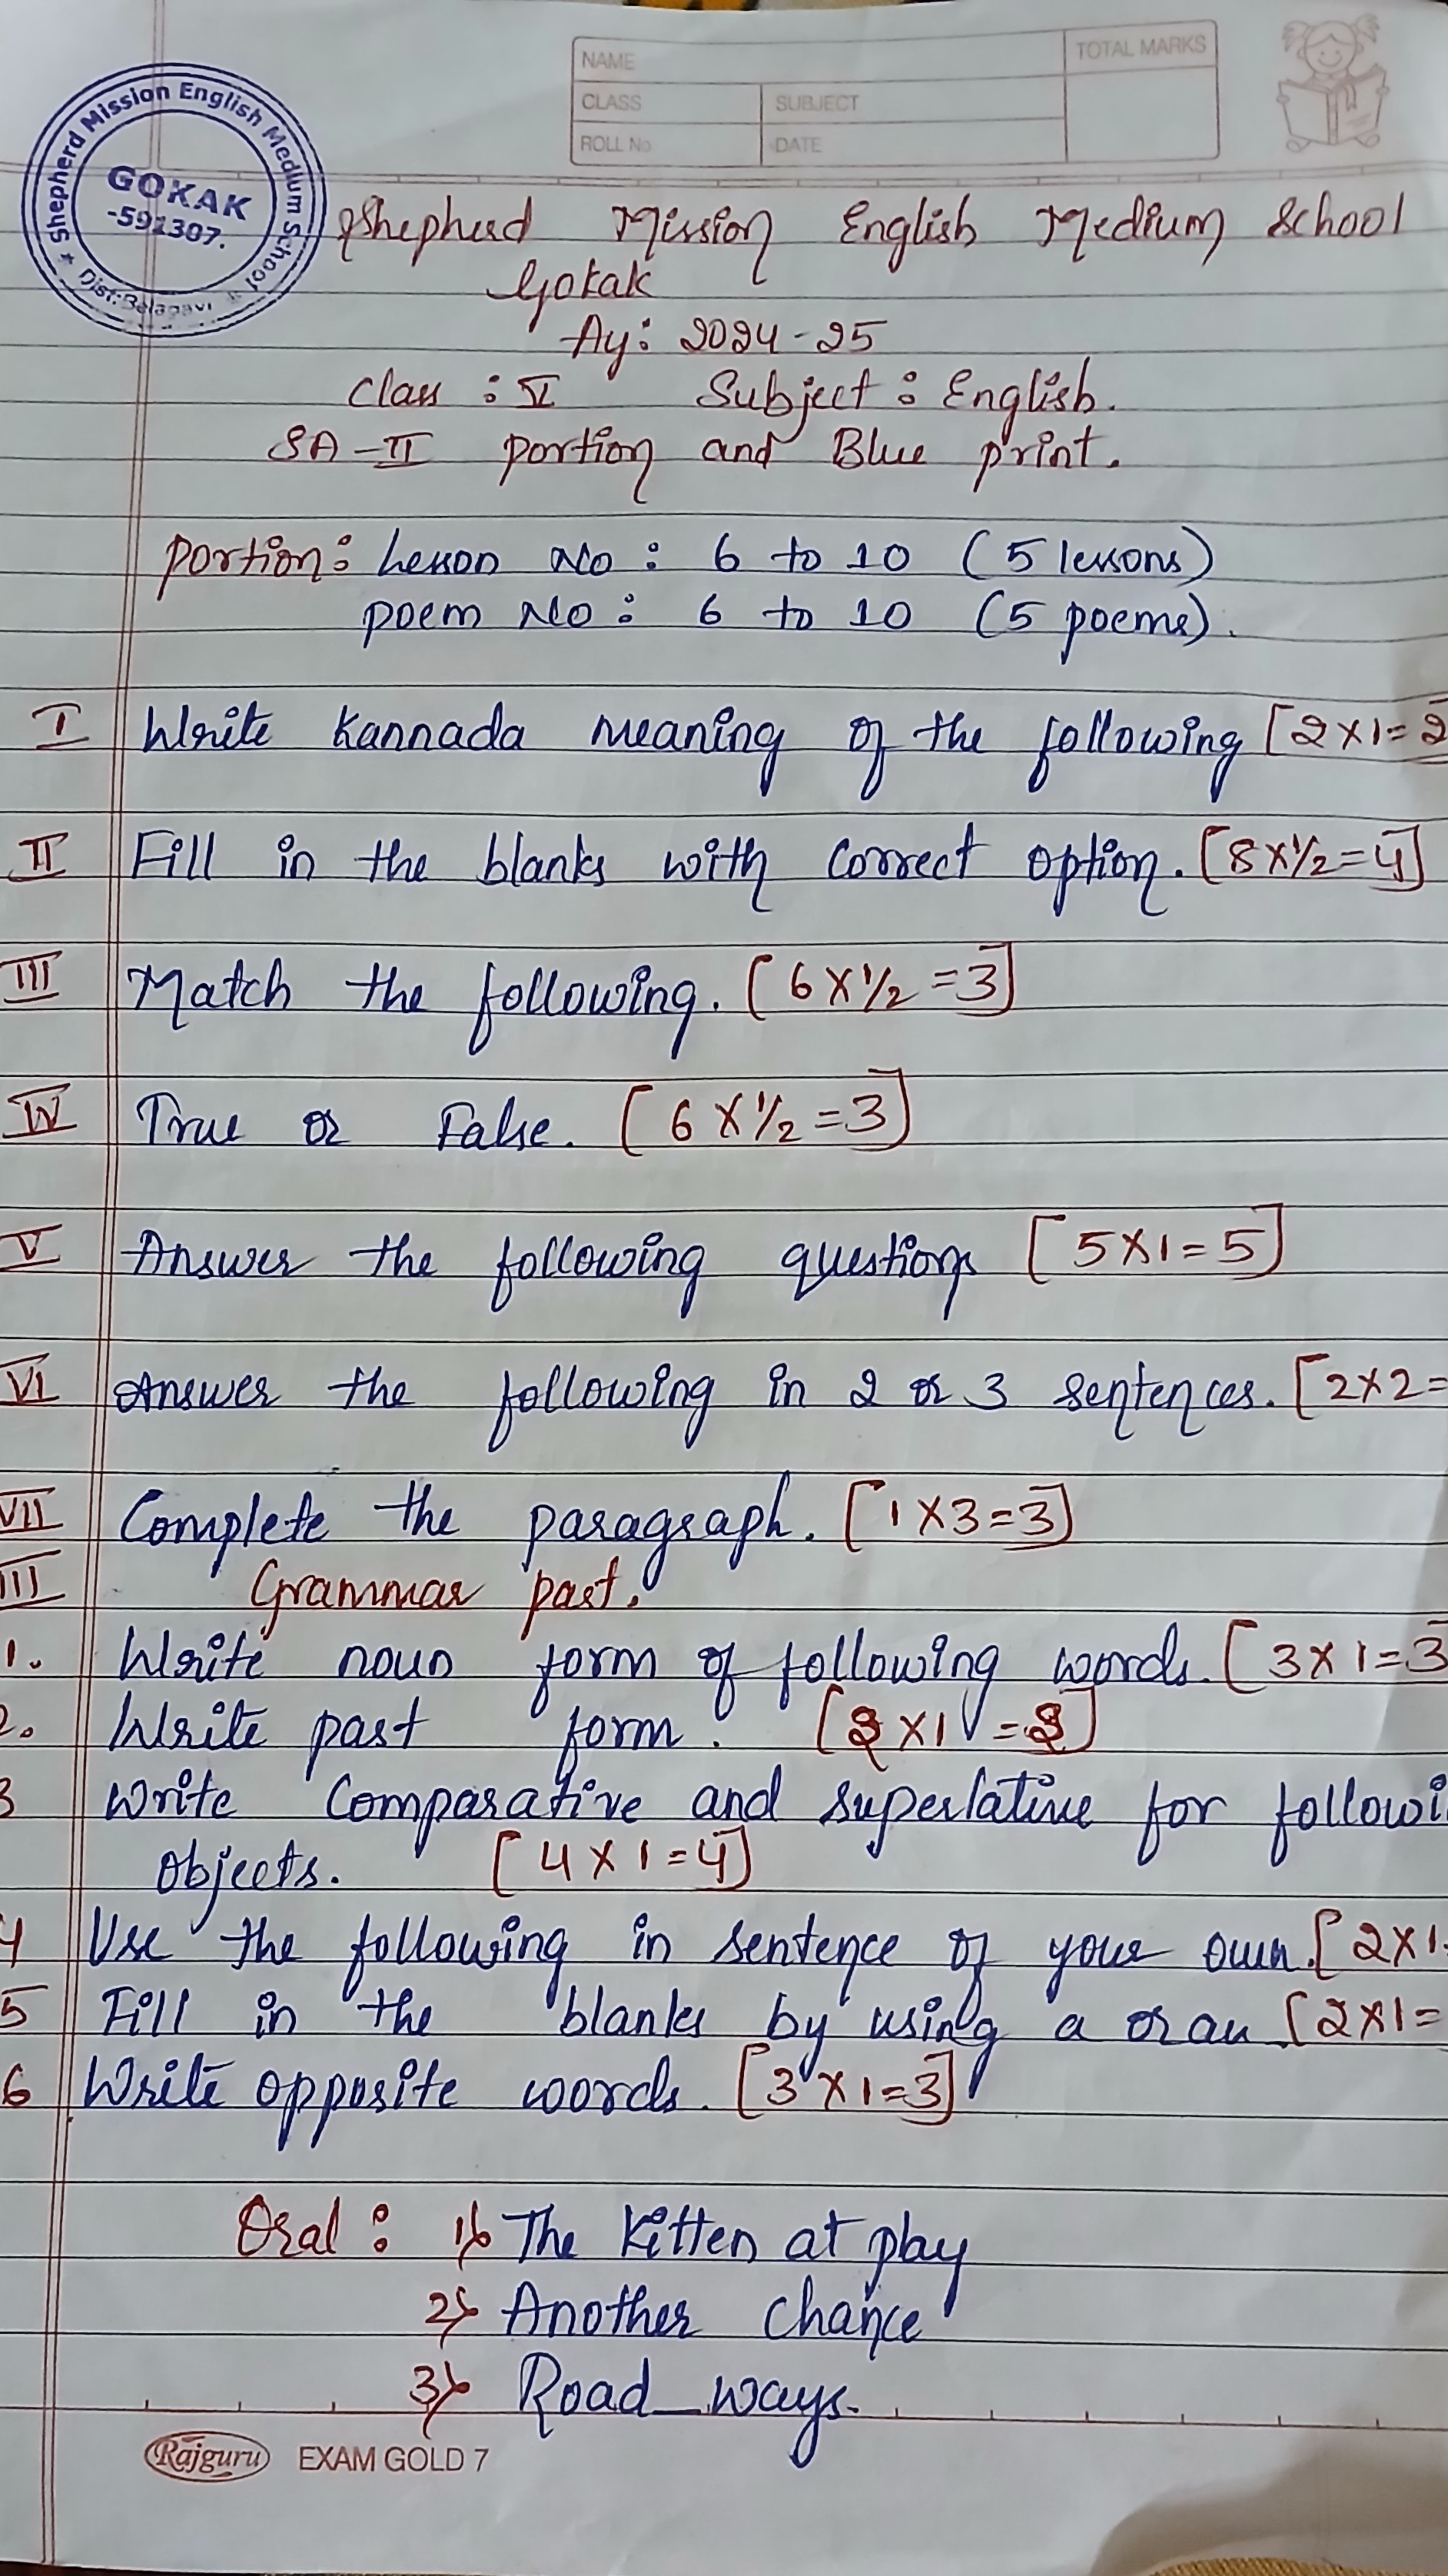 NAME
TOTAL MARKS
CLASS
SUBJECT
ROLL No.
DATE
Shepherd Mission English Medium School
GOKAK
-591307.
* Dist: Belagavi *
Shepherd Mission English Medium School
Gokak
Ay: 2024-25
Class : V Subject : English.
SA-II portion and Blue print.
portion: Lesson No : 6 to 10 (5 lessons)
poem No : 6 to 10 (5 poems).
I Write kannada meaning of the following [2x1=2
II Fill in the blanks with correct option. [8x1/2=4]
III Match the following. [6x1/2=3]
IV True or False. [6x1/2=3]
V Answer the following questions [5x1=5]
VI Answer the following in 2 or 3 sentences. [2x2=
VII Complete the paragraph. [1x3=3]
III Grammar part.
1. Write noun form of following words. [3x1=3
2. Write past form. [x1=]
3 Write Comparative and superlative for followi
objects. [4x1=4]
4 Use the following in sentence of your own. [2x1
5 Fill in the blanks by using a or an [2x1=
6 Write opposite words. [3x1=3]
Oral : 1) The kitten at play
2) Another chance
3) Road ways.
Rajguru EXAM GOLD 7